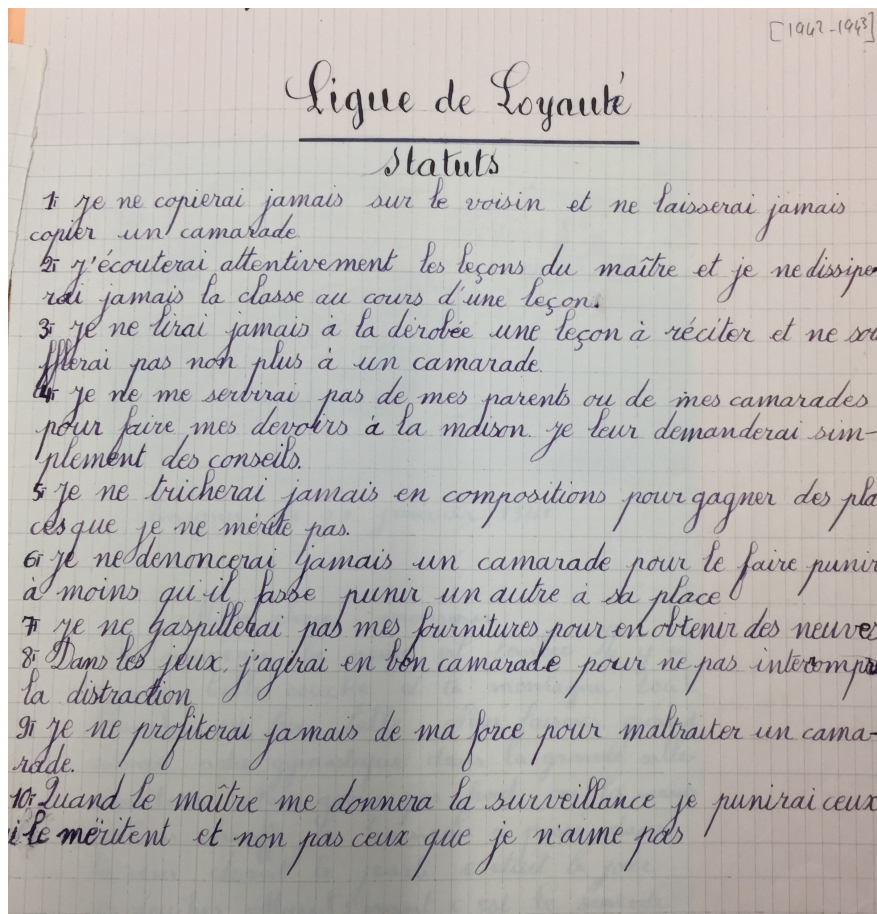 [1942-1943]
Ligue de Loyauté
Statuts
1: Je ne copierai jamais sur le voisin et ne laisserai jamais
copier un camarade
2: J'écouterai attentivement les leçons du maître et je ne dissipe
rai jamais la classe au cours d'une leçon.
3: Je ne lirai jamais à la dérobée une leçon à réciter et ne sou
fflerai pas non plus à un camarade.
4: Je ne me servirai pas de mes parents ou de mes camarades
pour faire mes devoirs à la maison. Je leur demanderai sim-
plement des conseils.
5: Je ne tricherai jamais en compositions pour gagner des pla
ces que je ne mérite pas.
6: Je ne denoncerai jamais un camarade pour le faire punir
à moins qu'il fasse punir un autre à sa place
7: Je ne gaspillerai pas mes fournitures pour en obtenir des neuves
8: Dans les jeux, j'agirai en bon camarade pour ne pas interompre
la distraction
9: Je ne profiterai jamais de ma force pour maltraiter un cama-
rade.
10: Quand le maître me donnera la surveillance je punirai ceux
i le méritent et non pas ceux que je n'aime pas